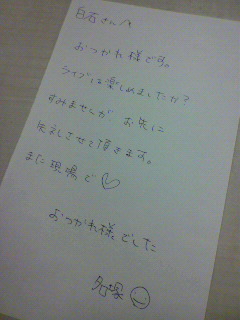 白石さんへ
おつかれ様です。
ライブは楽しめましたか?
すみませんが お先に
失礼させて頂きます。
また現場で♡
おつかれ様でした
名塚